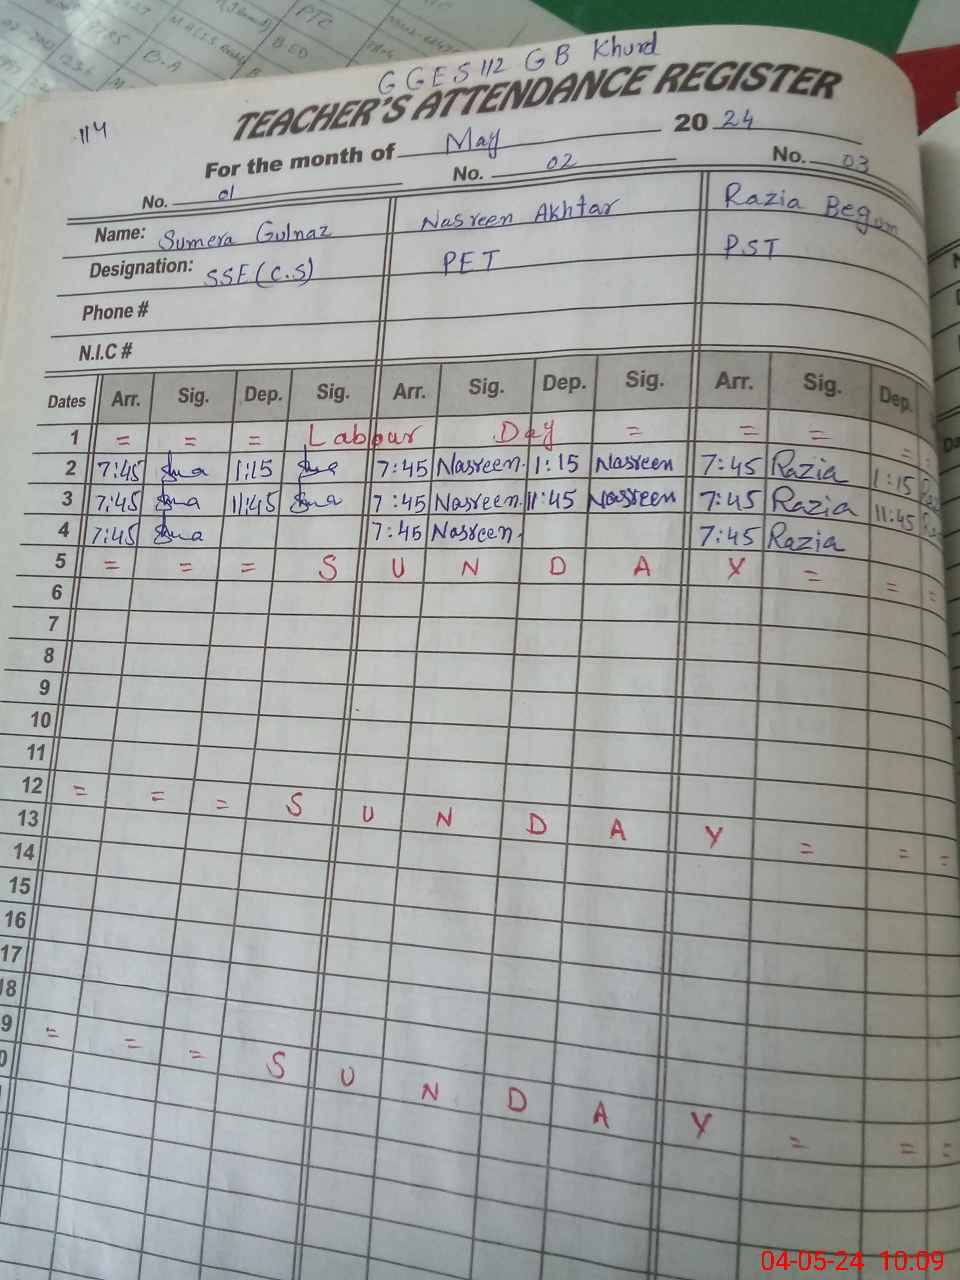 PTC
B-A
BED
G GES 112 GB Khurd
TEACHER'S ATTENDANCE REGISTER
114
For the month of May 2024
No. 01 No. 02 No. 03
Name: Sumera Gulnaz Nasreen Akhtar Razia Begum
Designation: SSE (C.S) PET PST
Phone #
N.I.C #
Dates Arr. Sig. Dep. Sig. Arr. Sig. Dep. Sig. Arr. Sig. Dep.
1 = = = Labour Day = = = = =
2 7:45 1:15 7:45 Nasreen. 1:15 Nasreen 7:45 Razia 1:15
3 7:45 11:45 7:45 Nasreen. 11:45 Nasreen 7:45 Razia 11:45
4 7:45 7:45 Nasreen. 7:45 Razia
5 = = = S U N D A Y = = =
6
7
8
9
10
11
12 = = = S U N D A Y = = =
13
14
15
16
17
18
9 = = = S U N D A Y = = =
0
04-05-24 10.09